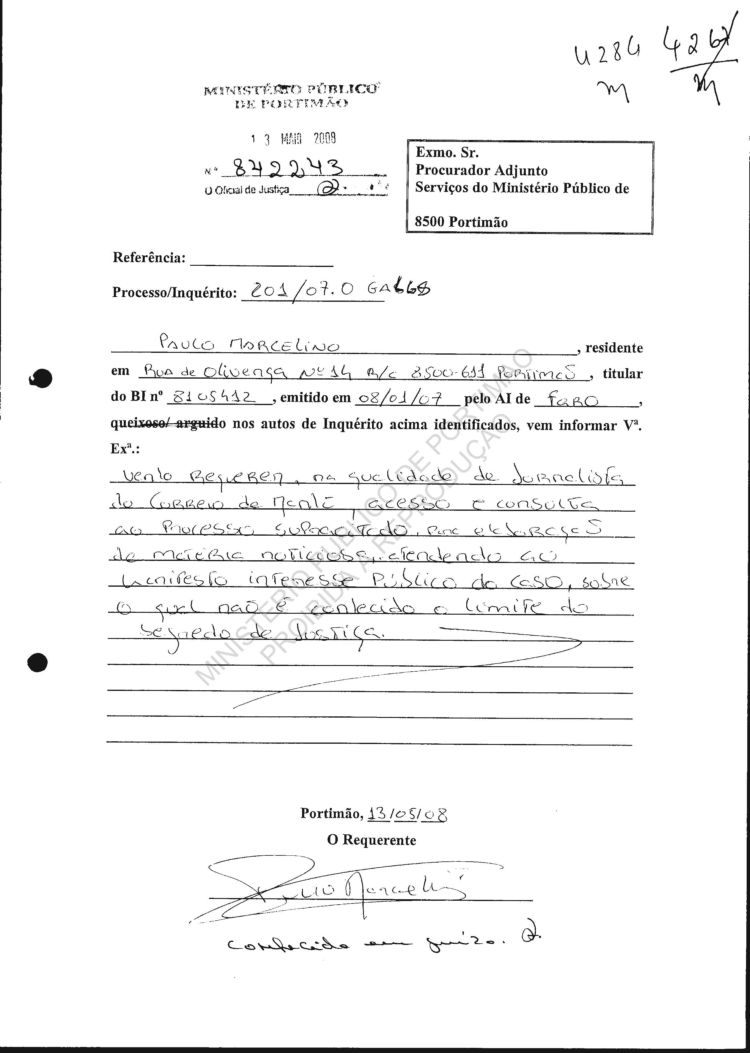 4284 4267
m m
MINISTÉRIO PÚBLICO
DE PORTIMÃO
13 MAIO 2008
Nº 842243
O Oficial de Justiça
Exmo. Sr.
Procurador Adjunto
Serviços do Ministério Público de
8500 Portimão
Referência:
Processo/Inquérito: 201/07.0 GALGS
PAULO MARCELINO, residente
em Rua de Olivença Nº 14 R/C 8500-611 PORTIMÃO, titular
do BI nº 8105412, emitido em 08/01/07 pelo AI de FARO,
queixoso/ arguido nos autos de Inquérito acima identificados, vem informar Vª.
Exª.:
Venho REQUERER, na qualidade de Jornalista
do Correio da Manhã, acesso e consulta
ao Processo supracitado, para elaboração
de matéria noticiosa, atendendo ao
manifesto interesse Público do caso, sobre
o qual não é conhecido o limite do
segredo de Justiça.
MINISTÉRIO PÚBLICO DE PORTIMÃO
PROIBIDA A REPRODUÇÃO
Portimão, 13/05/08
O Requerente
Paulo Marcelino
conhecido em juízo.